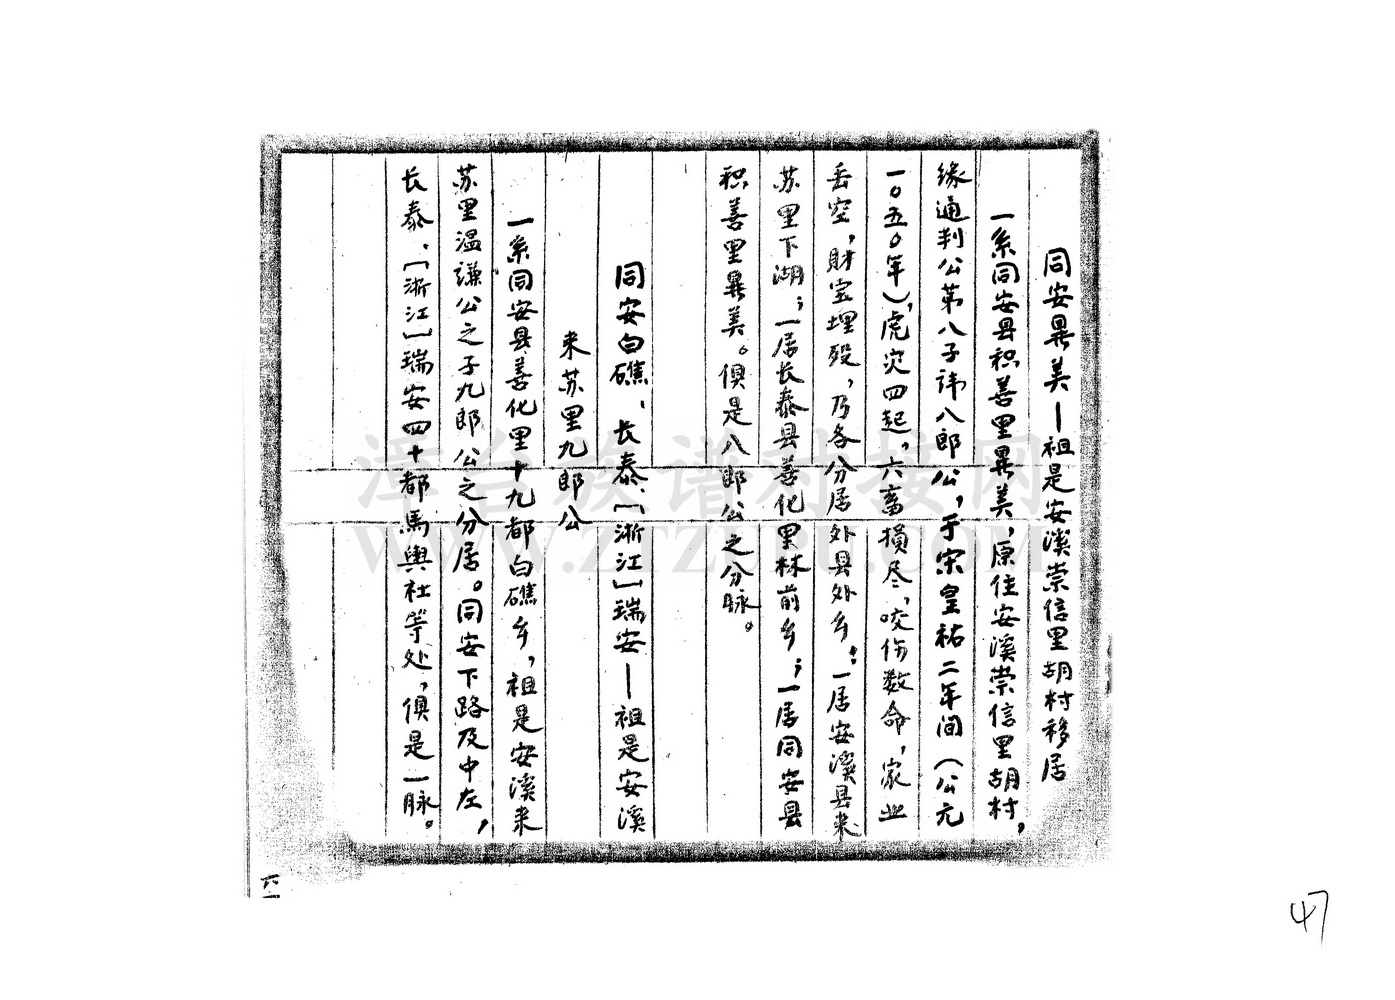 同安㫒美—祖是安溪崇信里胡村移居
一系同安县积善里㫒美，原住安溪崇信里胡村，
缘通判公第八子讳八郎公，于宋皇祐二年间（公元
一〇五〇年），虎灾四起，六畜损尽，咬伤数命，家业
丢空，财宝埋殁，乃各分居外县外乡：一居安溪县来
苏里下湖；一居长泰县善化里林前乡；一居同安县
积善里㫒美。俱是八郎公之分脉。
同安白礁、长泰、〔浙江〕瑞安—祖是安溪
来苏里九郎公
一系同安县善化里十九都白礁乡，祖是安溪来
苏里温谦公之子九郎公之分居。同安下路及中左，
长泰、〔浙江〕瑞安四十都馬輿社等处，俱是一脉。
漳台族谱对接网
WWW.ZTZUPU.COM
47